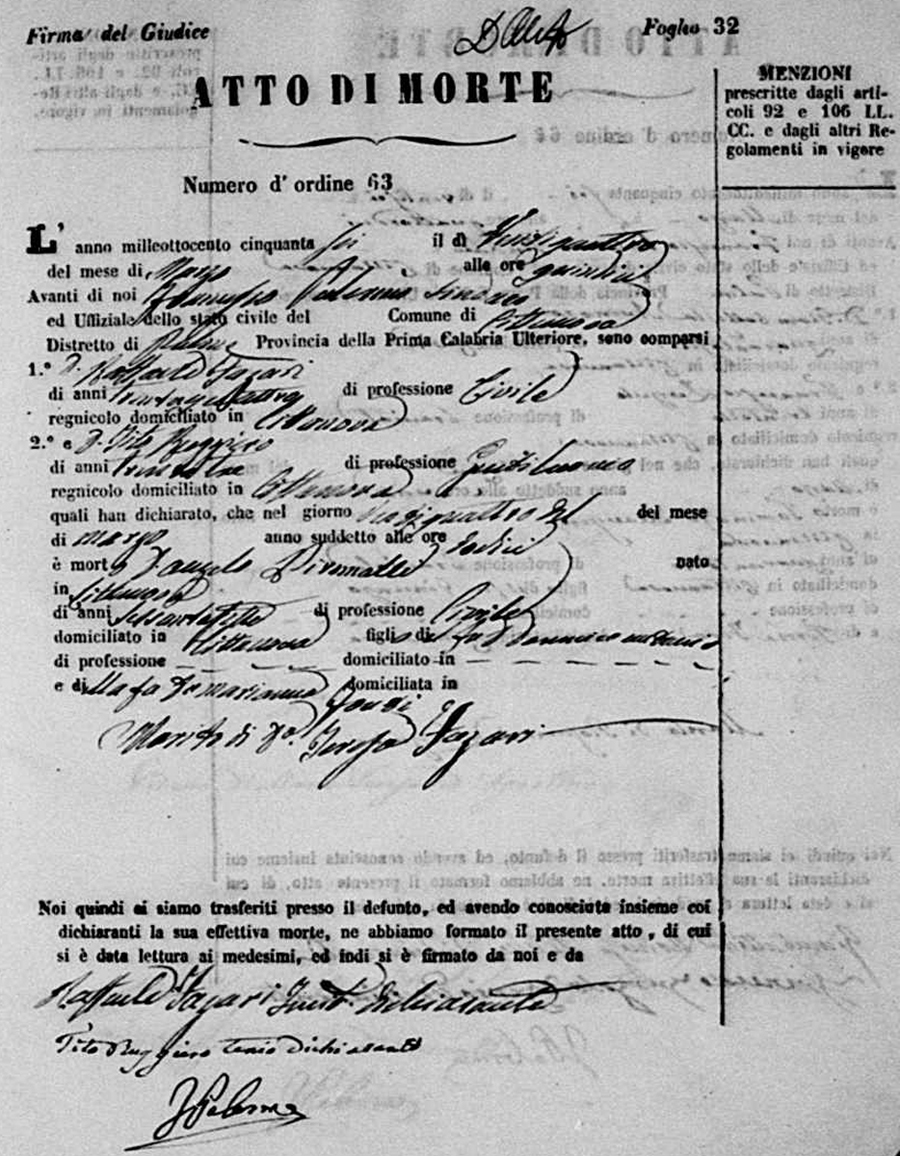 Firma del Giudice
Foglio 32
ATTO DI MORTE
MENZIONI
prescritte dagli arti-
coli 92 e 106 LL.
CC. e dagli altri Re-
golamenti in vigore
Numero d' ordine 63
L' anno milleottocento cinquanta sei il dì ventiquattro
del mese di Marzo alle ore quindici
Avanti di noi Palermo Sindaco
ed Uffiziale dello stato civile del Comune di Cittanova
Distretto di Palme Provincia della Prima Calabria Ulteriore, sono comparsi
1.° D. Raffaele Fazari
di anni di professione Civile
regnicolo domiciliato in Cittanova
2.° e D. Tito Ruggiero
di anni di professione Gentiluomo
regnicolo domiciliato in Cittanova
quali han dichiarato, che nel giorno ventiquattro del mese
di marzo anno suddetto alle ore dodici
è morto D. Angelo nato
in Cittanova
di anni di professione Civile
domiciliato in Cittanova figlio di fu D. Domenico
di professione domiciliato in
e di lla fu Da Marianna domiciliata in
Marito di Da. Teresa Fazari
Noi quindi ci siamo trasferiti presso il defunto, ed avendo conosciuta insieme coi
dichiaranti la sua effettiva morte, ne abbiamo formato il presente atto, di cui
si è data lettura ai medesimi, ed indi si è firmato da noi e da
Raffaele Fazari dichiarante
Tito Ruggiero dichiarante
Palermo